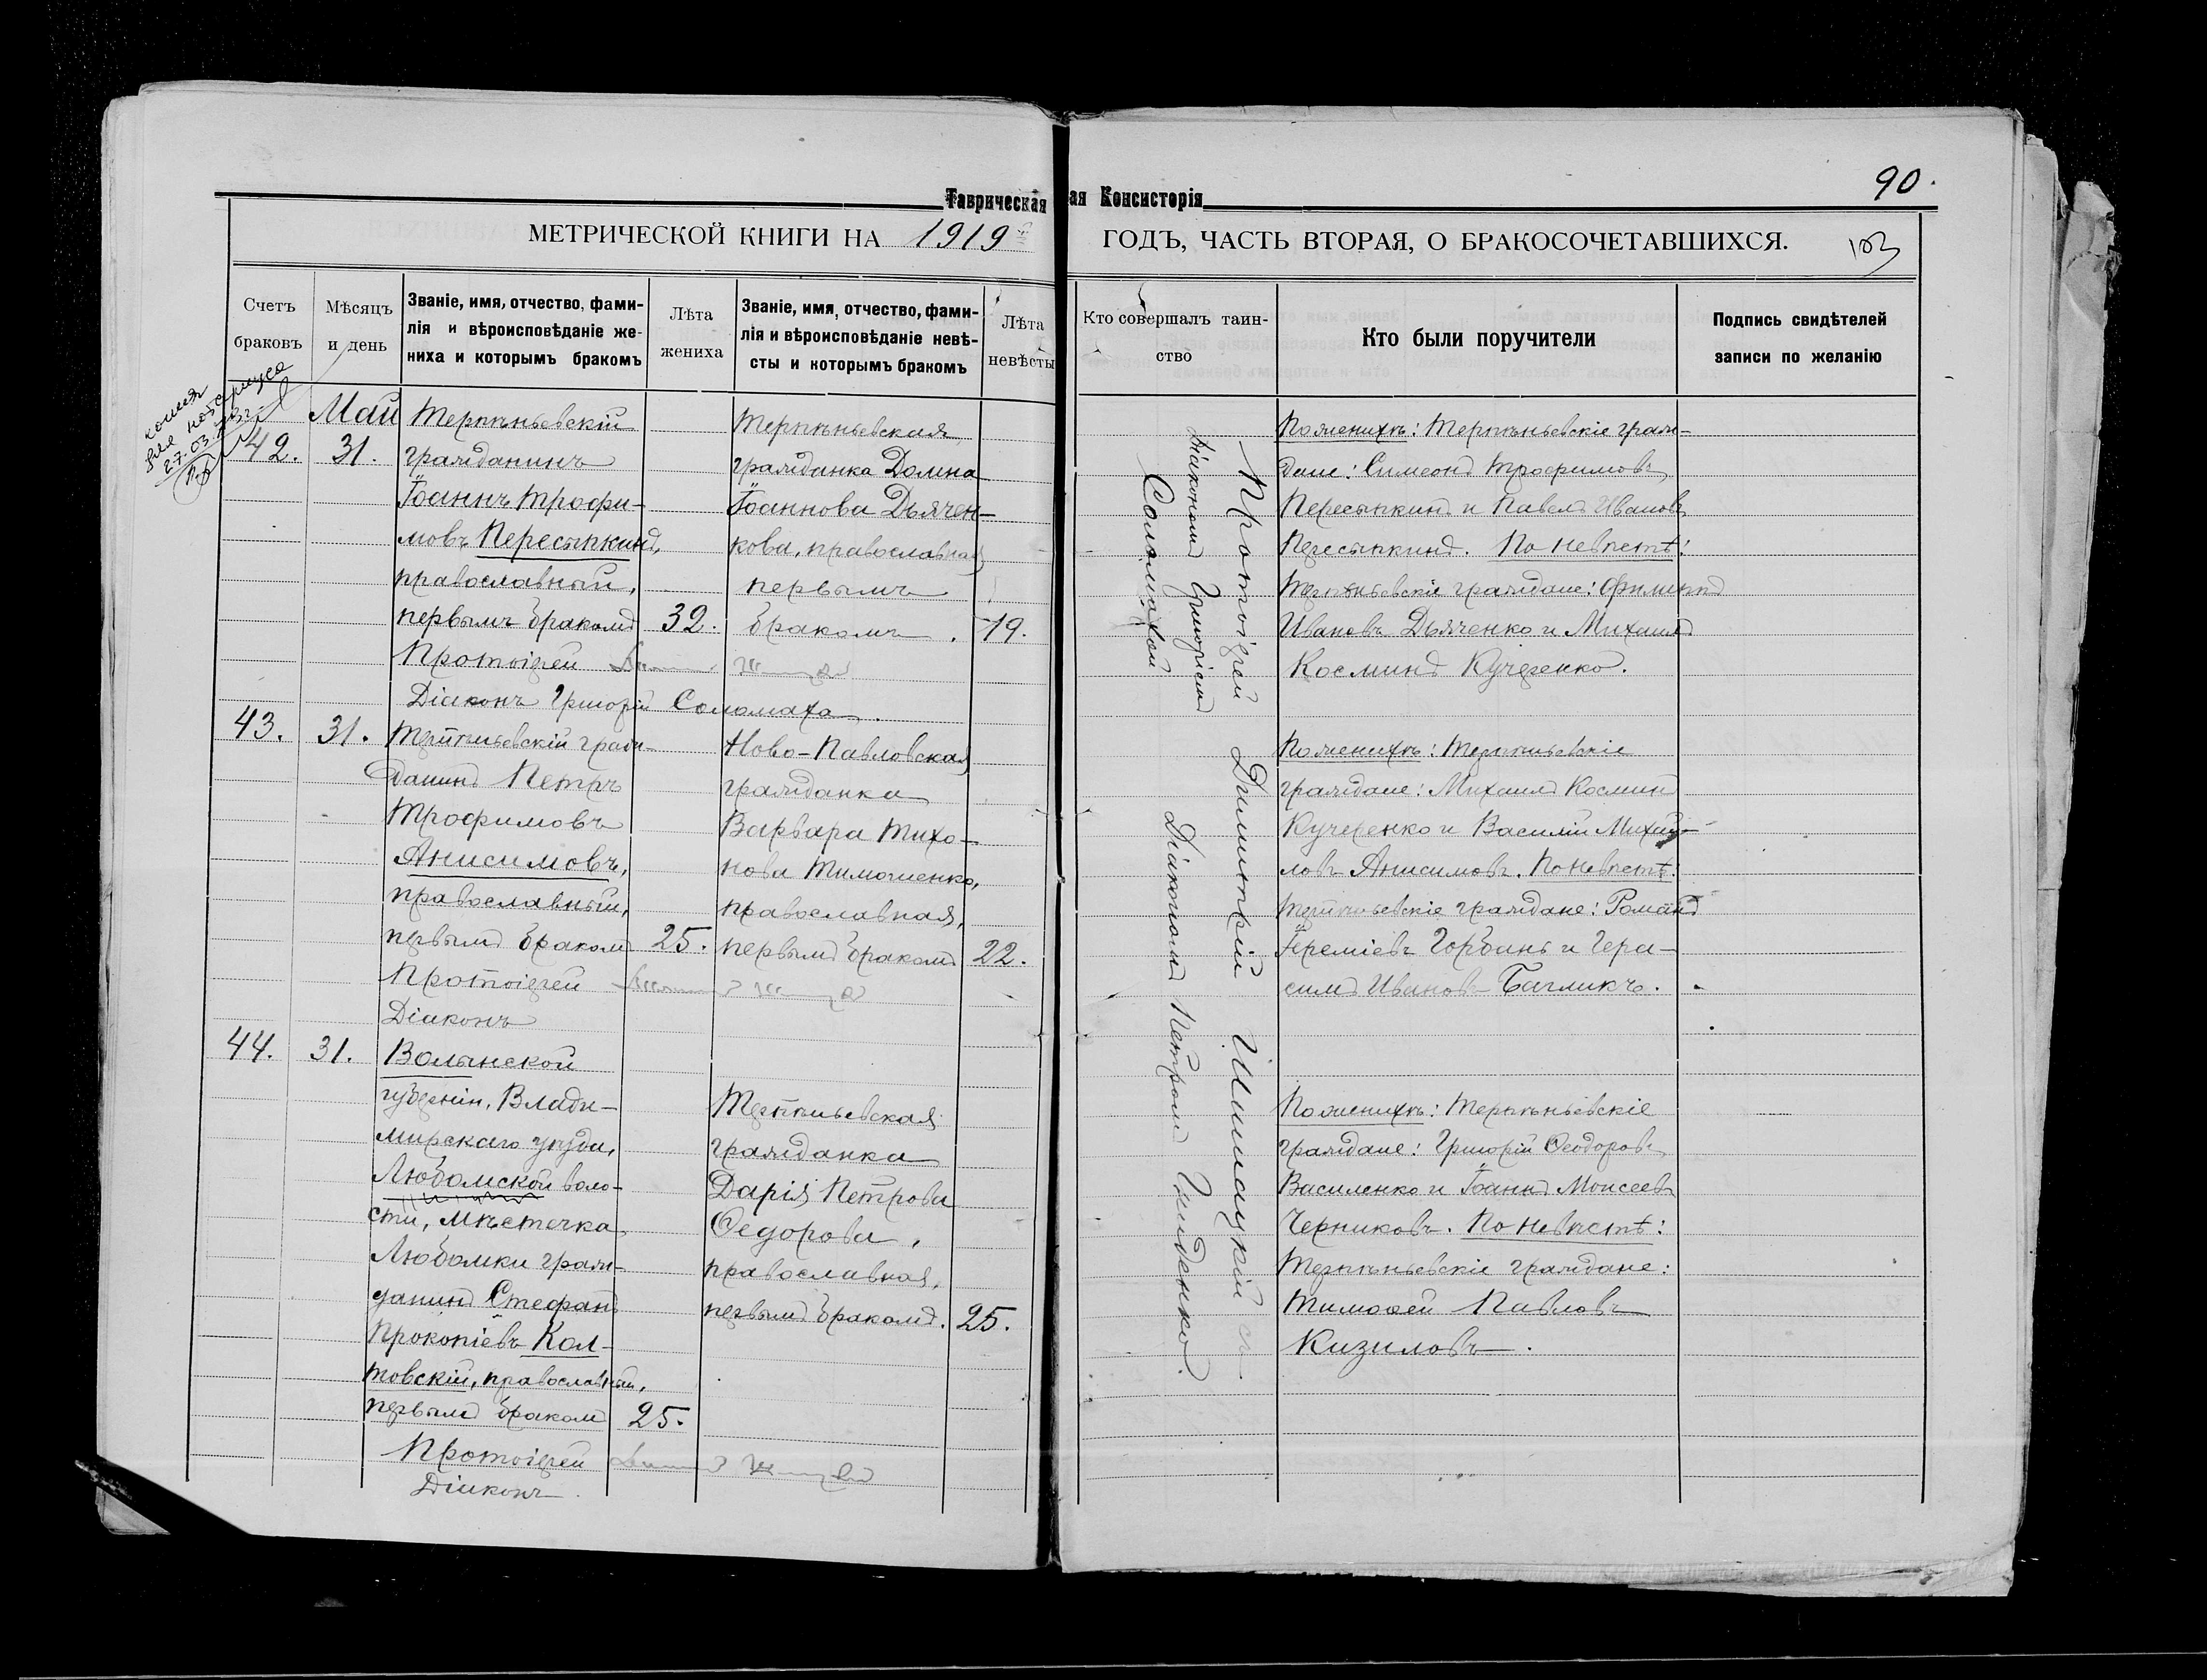 90.
Таврическая
ая Консисторія
МЕТРИЧЕСКОЙ КНИГИ НА 1919
ГОДЪ, ЧАСТЬ ВТОРАЯ, О БРАКОСОЧЕТАВШИХСЯ.
103
Счетъ браковъ
Мѣсяцъ и день
Званіе, имя, отчество, фами-
лія и вѣроисповѣданіе же-
ниха и которымъ бракомъ
Лѣта жениха
Званіе, имя, отчество, фами-
лія и вѣроисповѣданіе невѣ-
сты и которымъ бракомъ
Лѣта невѣсты
Кто совершалъ таин-
ство
Кто были поручители
Подпись свидѣтелей
записи по желанію
копия
для нотариуса
27.03
42.
Май
31.
Терпѣньевскій
гражданинъ
Іоаннъ Трофи-
мовъ Пересыпкинъ,
православный,
первымъ бракомъ
32.
Терпѣньевская
гражданка Домна
Іоаннова Дьячен-
кова, православная
первымъ
бракомъ.
19.
Протоіерей
Діаконъ Григорій Соломаха.
По женихѣ: Терпѣньевскіе граж-
дане: Симеонъ Трофимовъ
Пересыпкинъ и Павелъ Ивановъ
Пересыпкинъ. По невѣстѣ:
Терпѣньевскіе граждане: Филиппъ
Ивановъ Дьяченко и Михаилъ
Косминъ Кучеренко.
43.
31.
Терпѣньевскій граж-
данинъ Петръ
Трофимовъ
Анисимовъ,
православный,
первымъ бракомъ
25.
Ново-Павловская
гражданка
Варвара Тихо-
нова Тимошенко,
православная,
первымъ бракомъ
22.
Протоіерей
Діаконъ
По женихѣ: Терпѣньевскіе
граждане: Михаилъ Косминъ
Кучеренко и Василій Михай-
ловъ Анисимовъ. По невѣстѣ:
Терпѣньевскіе граждане: Романъ
Іереміевъ Горбань и Гера-
симъ Ивановъ Багликъ.
44.
31.
Волынской
губерніи, Влади-
мирскаго уѣзда,
Любомской воло-
сти, мѣстечка
Любомки граж-
данинъ Стефанъ
Прокопіевъ Кол-
товскій, православный,
первымъ бракомъ
25.
Терпѣньевская
гражданка
Дарія Петрова
Ѳедорова,
православная,
первымъ бракомъ.
25.
Протоіерей
Діаконъ
По женихѣ: Терпѣньевскіе
граждане: Григорій Ѳеодоровъ
Василенко и Іоаннъ Моисеевъ
Черниковъ. По невѣстѣ:
Терпѣньевскіе граждане:
Тимоѳей Павловъ
Кизиловъ.
Протоіерей Димитрій Шишацкій съ
діакономъ Григоріемъ
Соломахой
Діакономъ Петромъ Гниденко.